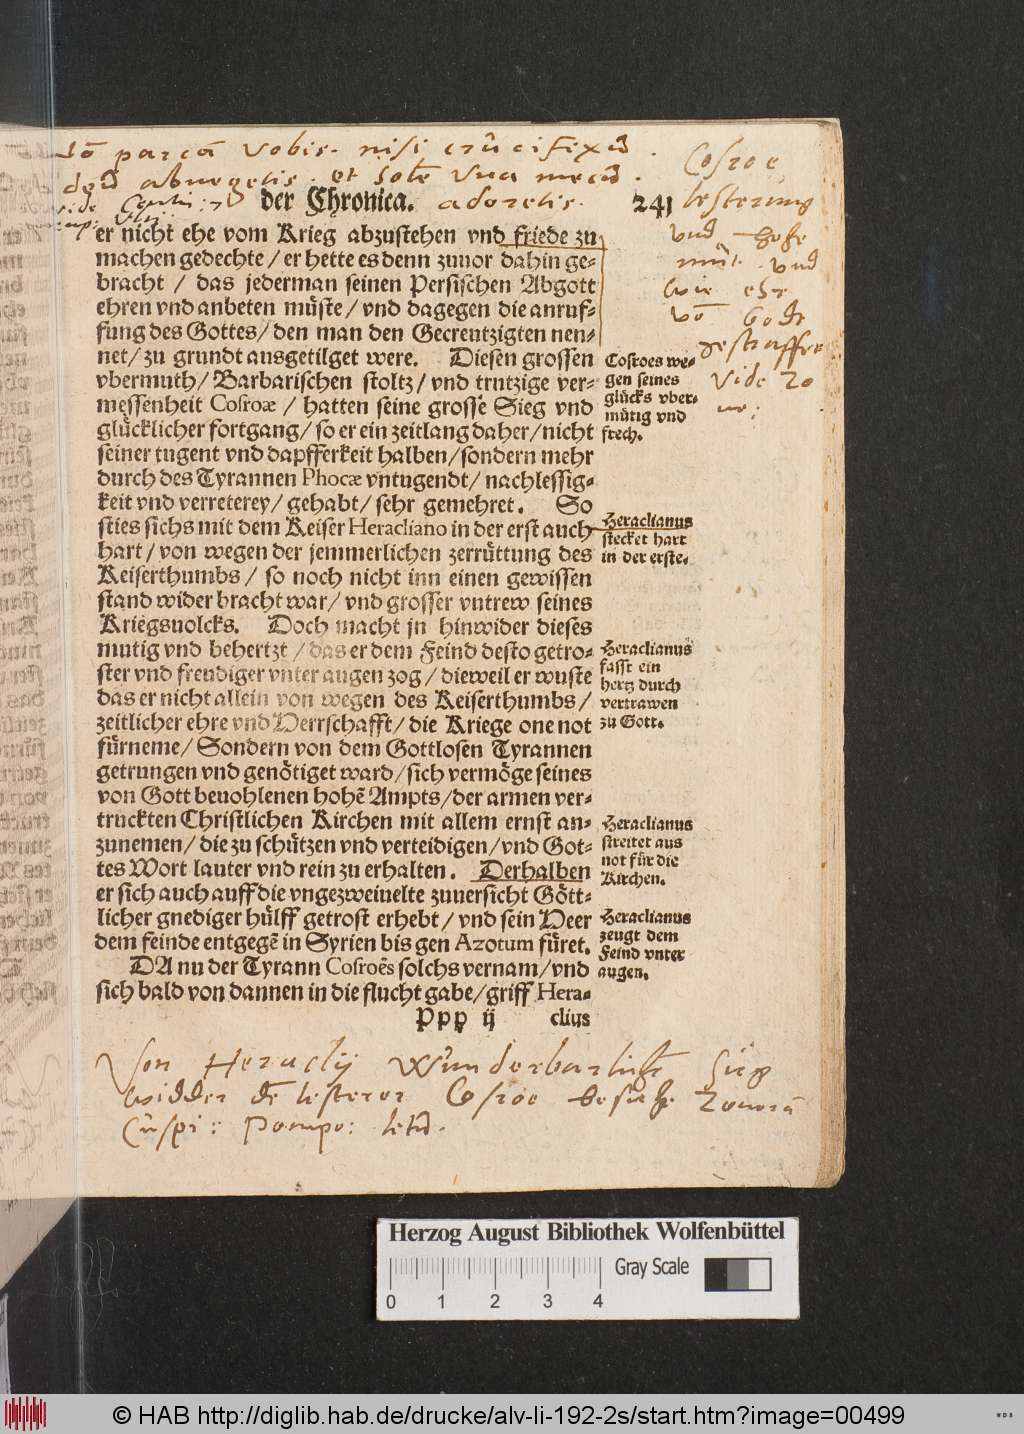 parcā vobis. nisi crucifixū
abnegetis. et sole
der Chronica. adoretis. 241
er nicht ehe vom Krieg abzustehen vnd friede zu
machen gedechte / er hette es denn zuuor dahin ge⸗
bracht / das jederman seinen Persischen Abgott
ehren vnd anbeten müste / vnd dagegen die anruf⸗
fung des Gottes / den man den Gecreutzigten nen⸗
net / zu grundt ausgetilget were. Diesen grossen
vbermuth / Barbarischen stoltz / vnd trutzige ver⸗
messenheit Cosroæ / hatten seine grosse Sieg vnd
glücklicher fortgang / so er ein zeitlang daher / nicht
seiner tugent vnd dapfferkeit halben / sondern mehr
durch des Tyrannen Phocæ vntugendt / nachlessig⸗
keit vnd verreterey / gehabt / sehr gemehret. So
sties sichs mit dem Keiser Heracliano in der erst auch
hart / von wegen der jemmerlichen zerrüttung des
Keiserthumbs / so noch nicht inn einen gewissen
stand wider bracht war / vnd grosser vntrew seines
Kriegsuolcks. Doch macht jn hinwider dieses
mutig vnd behertzt / das er dem Feind desto getro⸗
ster vnd freudiger vnter augen zog / dieweil er wuste
das er nicht allein von wegen des Keiserthumbs /
zeitlicher ehre vnd Herrschafft / die Kriege one not
fürneme / Sondern von dem Gottlosen Tyrannen
getrungen vnd genötiget ward / sich vermöge seines
von Gott beuohlenen hohē Ampts / der armen ver⸗
truckten Christlichen Kirchen mit allem ernst an⸗
zunemen / die zu schützen vnd verteidigen / vnd Got⸗
tes Wort lauter vnd rein zu erhalten. Derhalben
er sich auch auff die vngezweiuelte zuuersicht Gött⸗
licher gnediger hülff getrost erhebt / vnd sein Heer
dem feinde entgegē in Syrien bis gen Azotum füret.
DA nu der Tyrann Cosroës solchs vernam / vnd
sich bald von dannen in die flucht gabe / griff Hera⸗
Ppp ij clius
Cosroe
lesterung
vnd
vnd
wie ehr
vō Godt
gestraffet
vide Zo
Cosroes we⸗
gen seines
glücks vber⸗
mütig vnd
frech.
Heraclianus
stecket hart
in der erste.
Heraclianus
fasst ein
hertz durch
vertrawen
zu Gott.
Heraclianus
streitet aus
not für die
Kirchen.
Heraclianus
zeugt dem
Feind vnter
augen.
Von Heraclij Wunderbarlich Sieg
widder dē lesterer Cosroe besiehe Zonorā
Cuspi: Pompo: letū.
Herzog August Bibliothek Wolfenbüttel
Gray Scale
0 1 2 3 4
© HAB http://diglib.hab.de/drucke/alv-li-192-2s/start.htm?image=00499